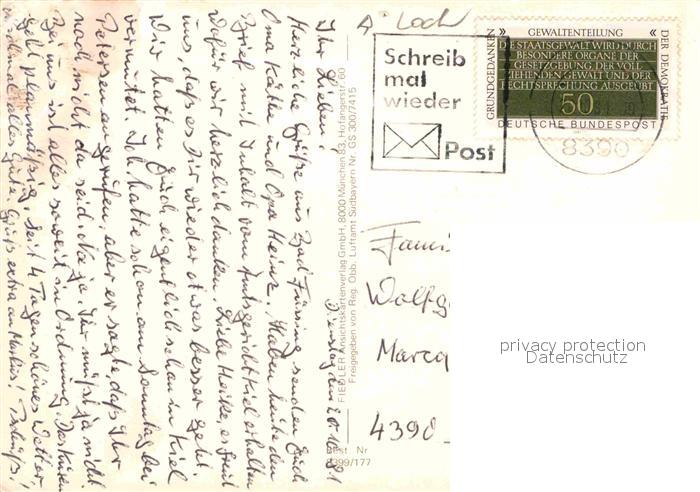 Dienstag den 20.10.81
Ihr Lieben!
Herzliche Grüße aus Bad Füssing senden Euch
Oma Käthe und Opa Heinz. Haben heute den
Brief mit Inhalt vom Amtsgericht Kiel erhalten
Wofür wir herzlich danken. Liebe Heike, es freut
uns, daß es Dir wieder etwas besser geht.
Wir hatten Euch eigentlich schon in Kiel
vermutet. Ich hatte schon am Sonntag bei
Petersen angerufen, aber er sagte, daß Ihr
noch nicht da seid. Na ja. Ihr müßt ja nicht
Bei uns ist alles soweit in Ordnung. Das
geht planmäßig. Seit 4 Tagen schönes Wetter
nochmal alles Gute. Gruß extra an Markus! Tschüß!
FIEDLER Ansichtskartenverlag GmbH, 8000 München 83, Hofangerstr. 60
Freigegeben von Reg. Obb. Luftamt Südbayern Nr. GS 300/7415
Best. Nr
8399/177
A. Loch
Schreib
mal
wieder
Post
GRUNDGEDANKEN
» GEWALTENTEILUNG «
DER DEMOKRATIE
DIE STAATSGEWALT WIRD DURCH
BESONDERE ORGANE DER
GESETZGEBUNG, DER VOLL-
ZIEHENDEN GEWALT UND DER
RECHTSPRECHUNG AUSGEÜBT
50
DEUTSCHE BUNDESPOST
8390
Fami
Wolfg
Marca
4390
privacy protection
Datenschutz